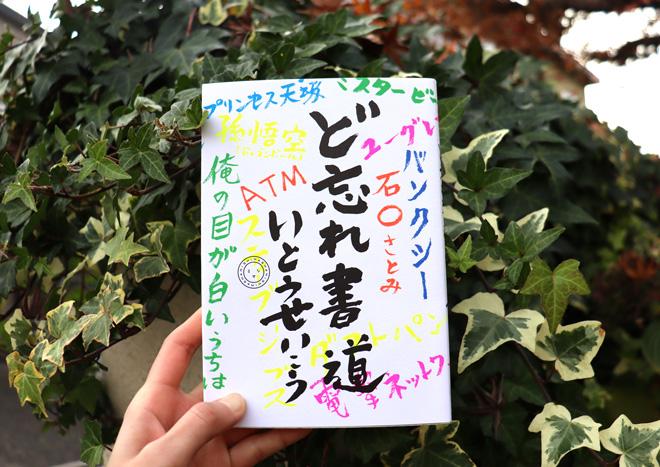 ど忘れ書道
いとうせいこう
プリンセス天功
ミスタービ
孫悟空
ユーグレ
バンクシー
石〇さとみ
ATM
俺の目が白いうちは
スティーブ・ジョブス
ダストパン
電車ネットワ